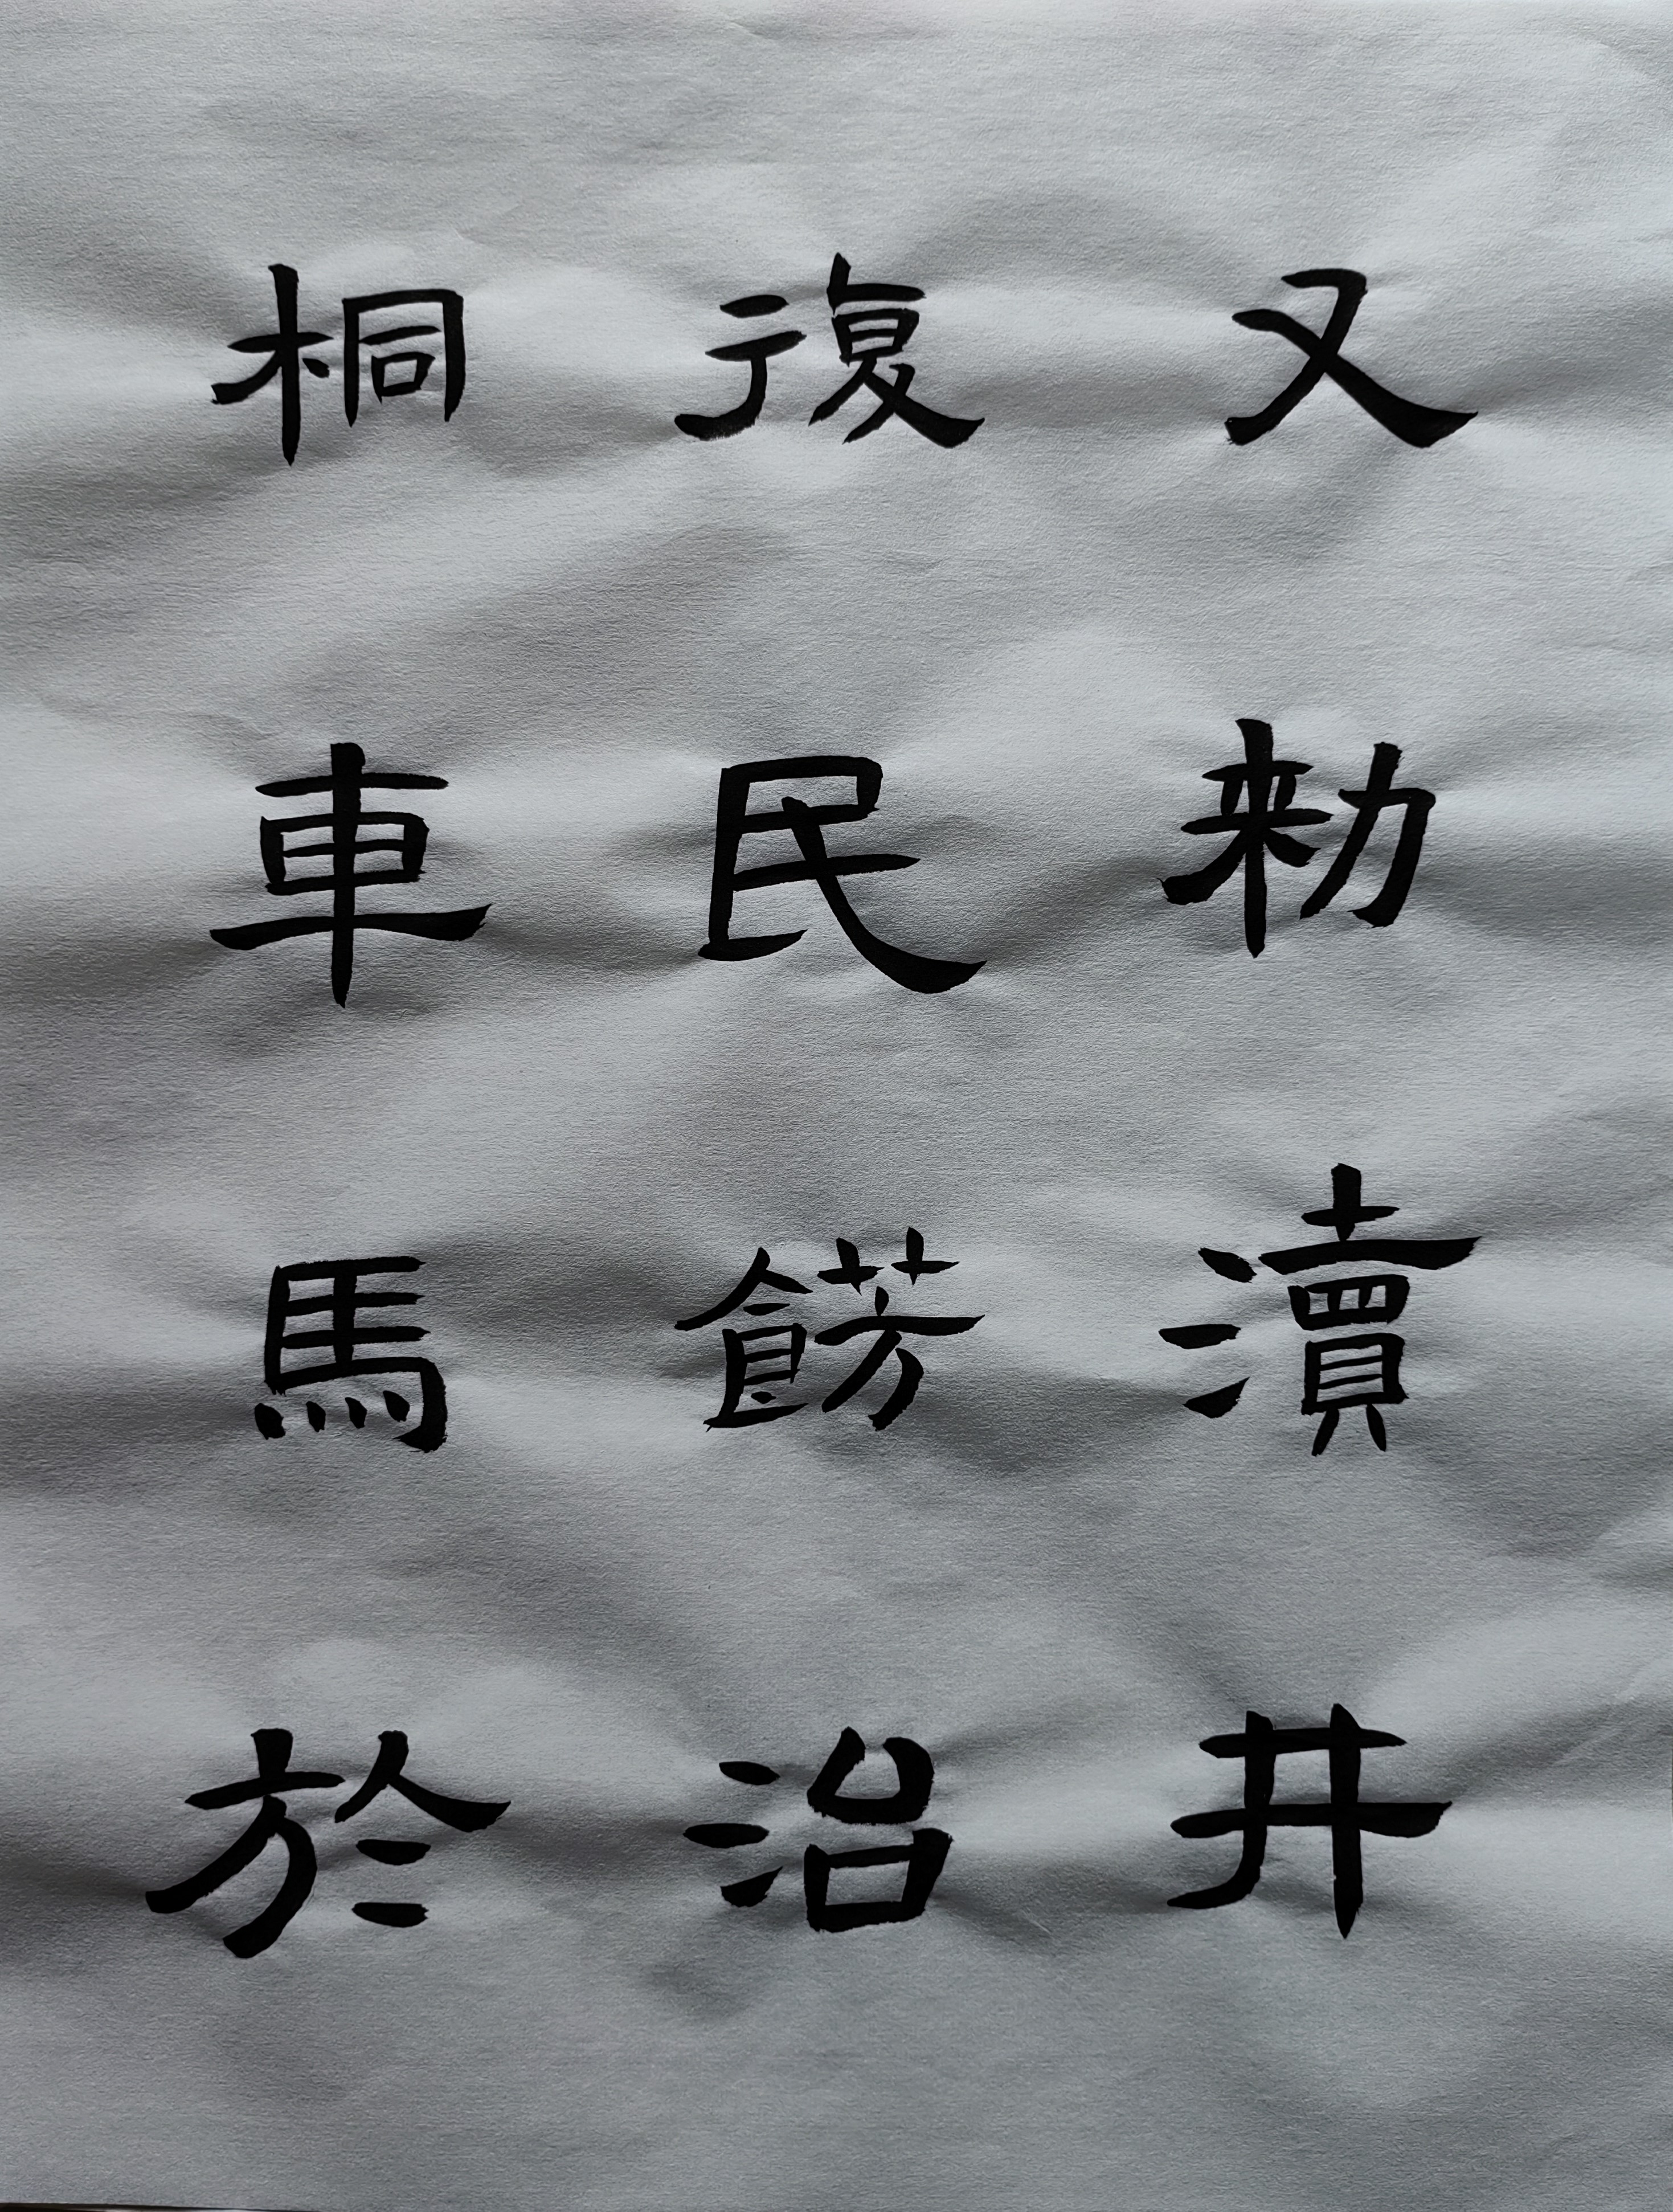 又勑瀆井
復民餝治
桐車馬於